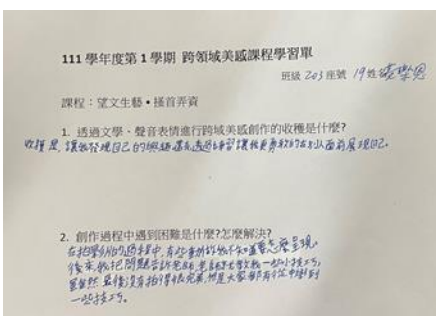 111 學年度第 1 學期 跨領域美感課程學習單
班級 203 座號 19 姓名
課程：望文生藝•搔首弄資
1. 透過文學、聲音表情進行跨域美感創作的收穫是什麼?
收穫是, 讓我發現自己的興趣還有透過練習讓我更勇敢的在別人面前展現自己。
2. 創作過程中遇到困難是什麼?怎麼解決?
在拍學的過程中, 有些動的我不知道要怎麼呈現,
後來, 我把問題告訴老師, 老師教我一些小技巧,
雖然最後沒有拍得很完美, 但是大家都有從中學到
一些技巧。